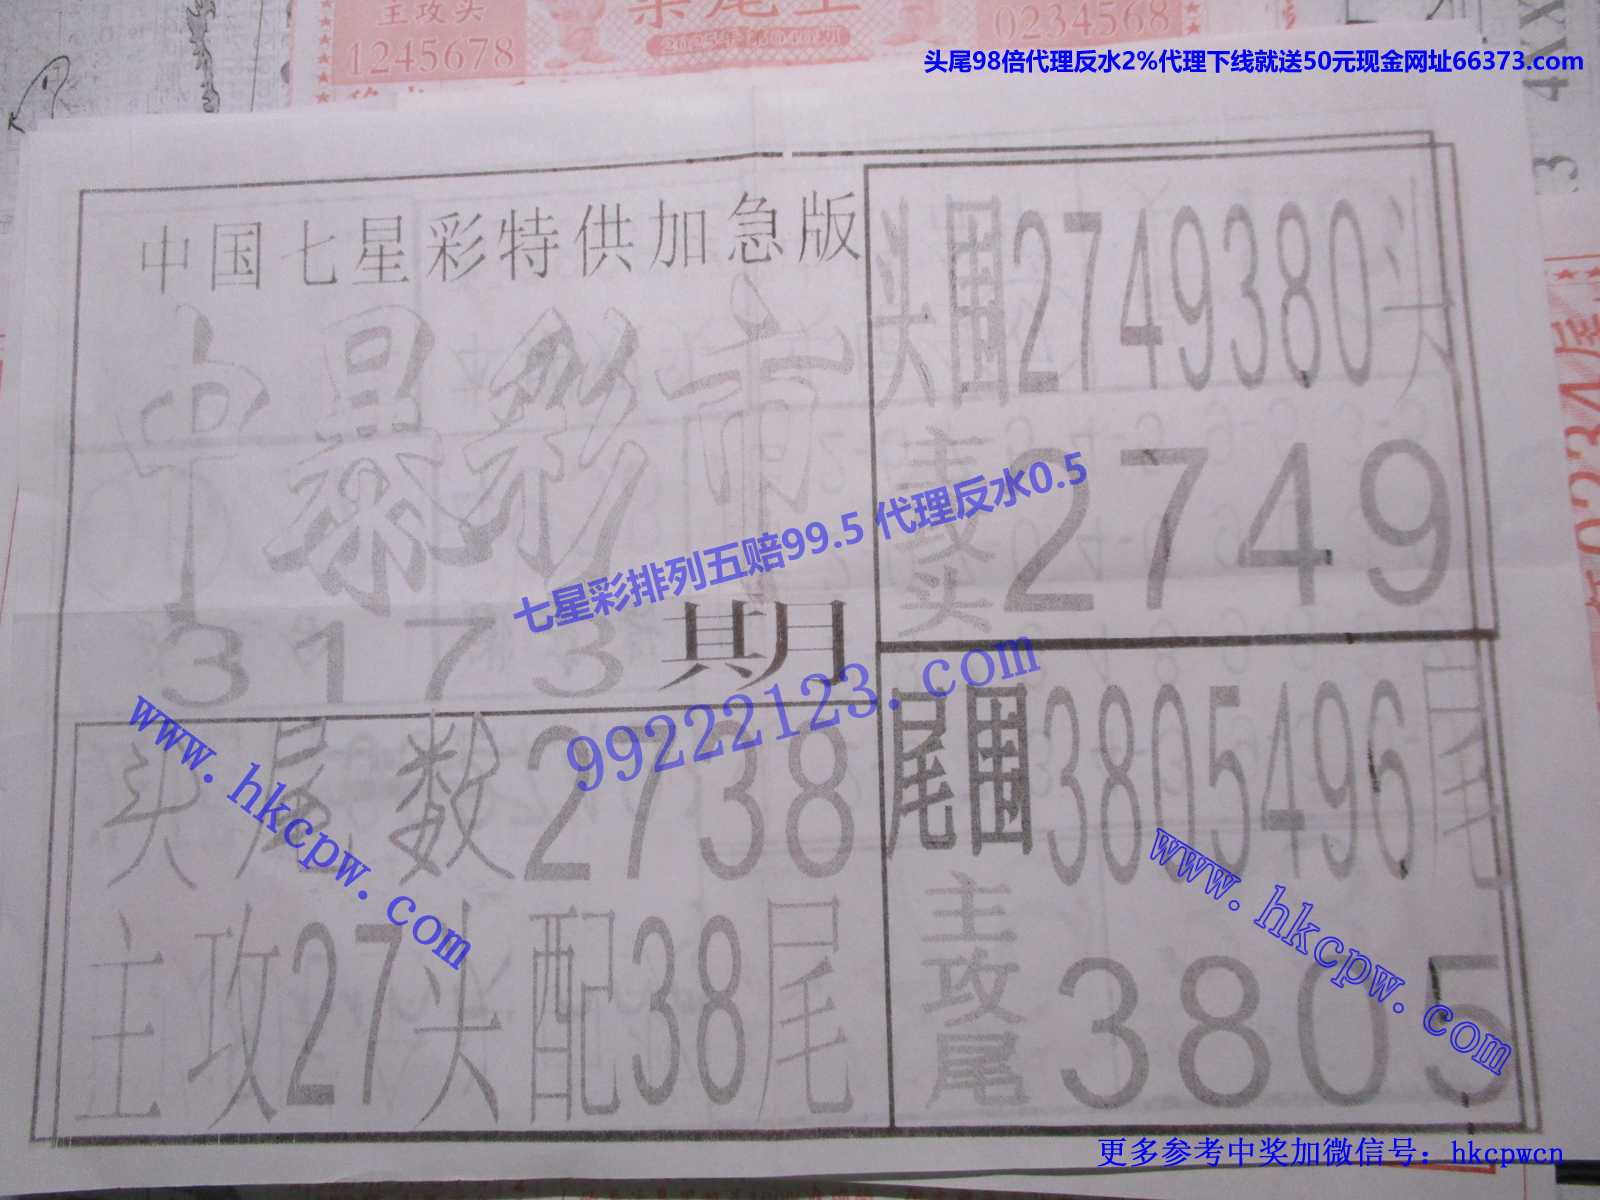 主攻头
1245678
2025年第040期
0234568
头尾98倍代理反水2%代理下线就送50元现金网址66373.com
4XX
3
中国七星彩特供加急版
中景彩市
3173期
头尾数2738
主攻27头配38尾
头围2749380头
主攻头
2749
尾围3805496尾
主攻尾
3805
七星彩排列五赔99.5 代理反水0.5
99222123.com
www.hkcpw.com
www.hkcpw.com
0234尾
更多参考中奖加微信号：hkcpwcn